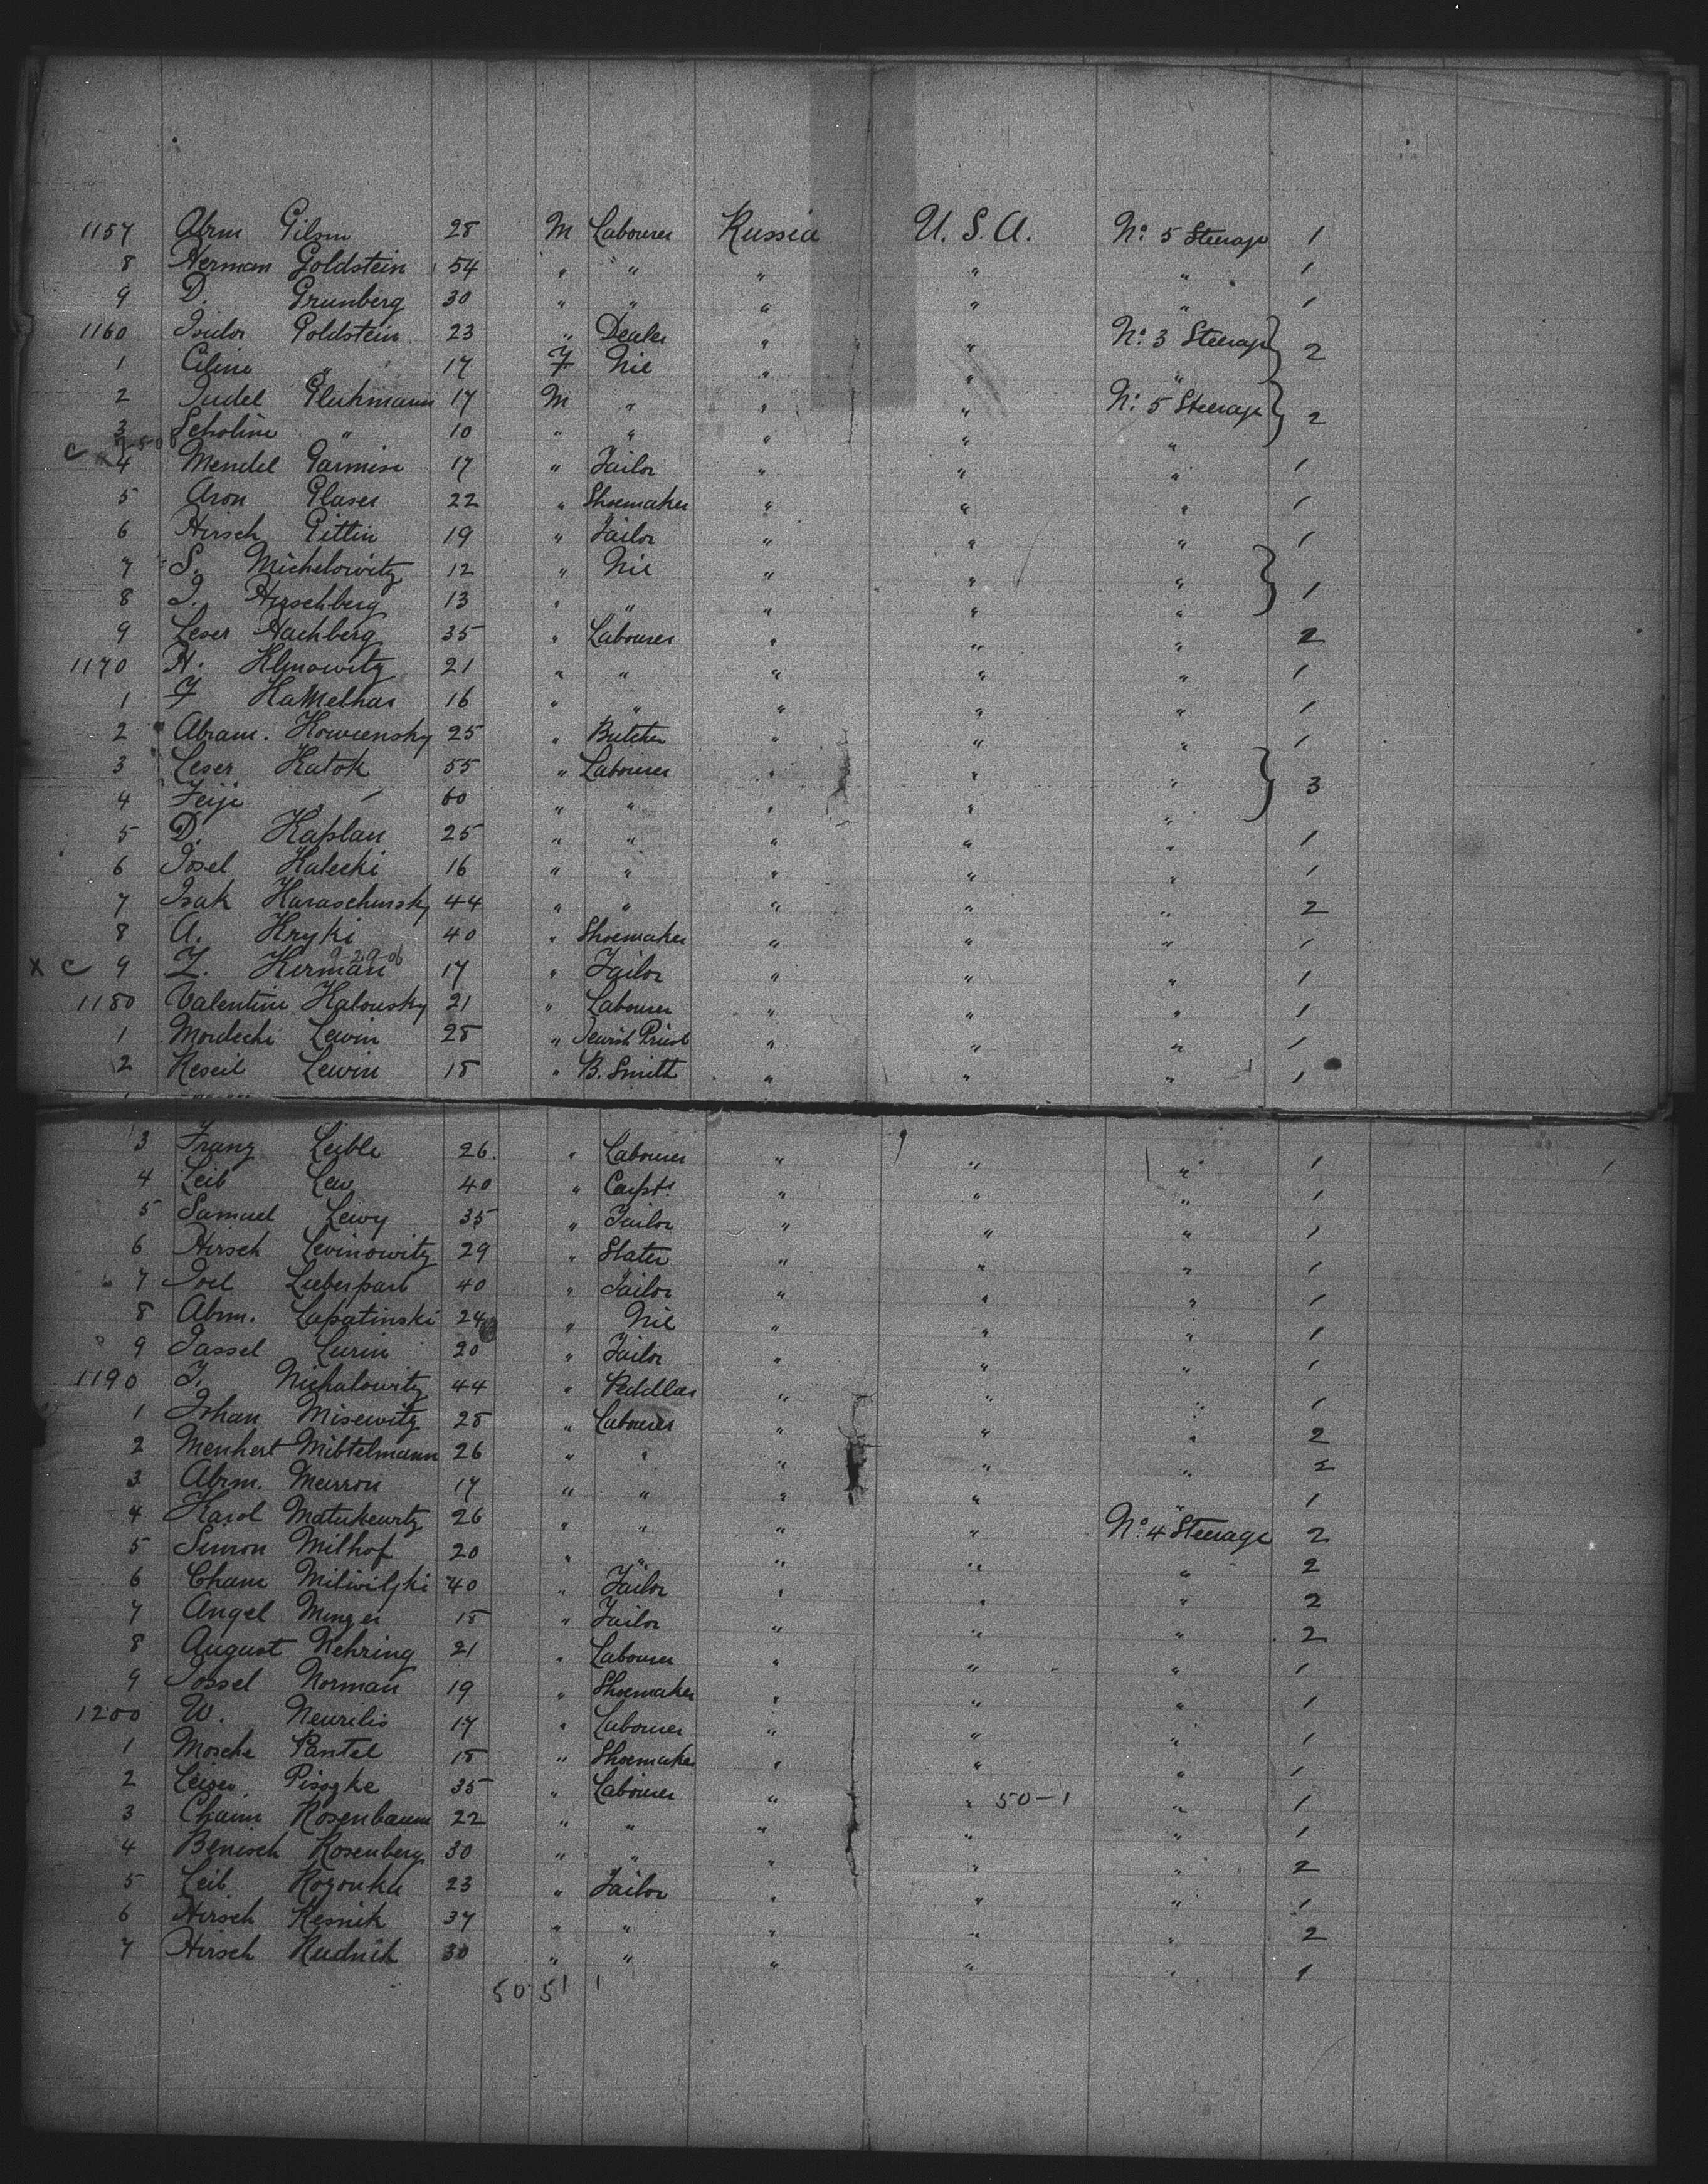 1157 Abrm Gilson 28 M Labourer Russia U.S.A. No: 5 Steerage 1
8 Herman Goldstein 54 " " " " " 1
9 D. Grunberg 30 " " " " " 1
1160 Isidor Goldstein 23 " Dealer " " No: 3 Steerage } 2
1 Celine " 17 F Nil " " "
2 Judel Gluhmann 17 M " " " No: 5 Steerage } 2
3 Scholim " 10 " " " " "
C x 4 Mendel Garmise 17 " Tailor " " " 1
5 Aron Glaser 22 " Shoemaker " " " 1
6 Hirsch Gittin 19 " Tailor " " " 1
7 S. Michelowitz 12 " Nil " " " } 1
8 I. Hirschberg 13 " " " " "
9 Leser Hachberg 35 " Labourer " " " 2
1170 H. Klmowitz 21 " " " " " 1
1 F Kamelhar 16 " " " " " 1
2 Abram. Kowiensky 25 " Butcher " " " 1
3 Leser Katok 55 " Labourer " " " } 3
4 Feije " 60 " " " " "
5 D. Kaplan 25 " " " " " 1
6 Josel Kalecki 16 " " " " " 1
7 Isak Karaschinsky 44 " " " " " 2
8 A. Kryki 40 " Shoemaker " " " 1
9-29-06
X C 9 Z. Kerman 17 " Tailor " " " 1
1180 Valentine Kalousky 21 " Labourer " " " 1
1 Mordechi Lewin 28 " Jewish Priest " " " 1
2 Keseil Lewin 18 " B. Smith " " " 1
3 Franz Leible 26. " Labourer " " " 1 1
4 Leib Lew 40 " Carpt: " " " 1
5 Samuel Lewy 35 " Tailor " " " 1
6 Hirsch Levinowitz 29 " Slater " " " 1
7 Joel Lieberpart 40 " Tailor " " " 1
8 Abrm. Lapatinski 24 " Nil " " " 1
9 Jassel Lurin 20 " Tailor " " " 1
1190 J. Michalowitz 44 " Peddlar " " " 1
1 Johan Misewitz 28 " Labourer " " " 2
2 Menhert Mibtelmann 26 " " " " " 2
3 Abrm. Meirron 17 " " " " " 1
4 Karol Matukewitz 26 " " " " No: 4 Steerage 2
5 Simon Milhof 20 " " " " " 2
6 Chane Miliwilski 40 " Tailor " " " 2
7 Angel Minzer 18 " Tailor " " " 2
8 August Nehring 21 " Labourer " " " 1
9 Jossel Norman 19 " Shoemaker " " " 1
1200 W. Neurilis 17 " Labourer " " " 1
1 Mosche Pantel 18 " Shoemaker " " " 1
2 Leiser Pisozke 35 " Labourer " " 50-1 " 1
3 Chaim Rosenbaum 22 " " " " " 1
4 Benisch Rosenberg 30 " " " " " 2
5 Leib Rozonka 23 " Tailor " " " 1
6 Hirsch Resnik 37 " " " " " 2
7 Hirsch Rudnik 30 " " " " " 1
50 51 1